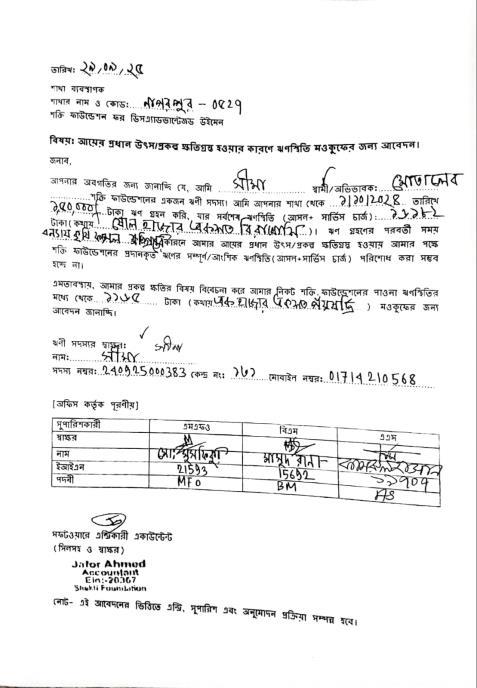 তারিখঃ ২৯/০৯/২৫
শাখা ব্যবস্থাপক
শাখার নাম ও কোডঃ - 0429
শক্তি ফাউন্ডেশন ফর ডিসএ্যাডভান্টেজড উইমেন
বিষয়ঃ আয়ের প্রধান উৎস/প্রকল্প ক্ষতিগ্রস্ত হওয়ার কারণে ঋণস্থিতি মওকুফের জন্য আবেদন।
জনাব,
আপনার অবগতির জন্য জানাচ্ছি যে, আমি সীমা স্বামী/অভিভাবকঃ মোতালেব
শক্তি ফাউন্ডেশনের একজন ঋণী সদস্য। আমি আপনার শাখা থেকে তারিখে
টাকা ঋণ গ্রহন করি, যার সর্বশেষ ঋণস্থিতি (আসল+ সার্ভিস চার্জ)ঃ
টাকা(কথায় হাজার একশত বিরাশি)। ঋণ গ্রহণের পরবর্তী সময়
কারনে আমার আয়ের প্রধান উৎস/প্রকল্প ক্ষতিগ্রস্ত হওয়ায় আমার পক্ষে
শক্তি ফাউন্ডেশনের প্রদানকৃত ঋণের সম্পূর্ণ/আংশিক ঋণস্থিতি(আসল+সার্ভিস চার্জ) পরিশোধ করা সম্ভব
হচ্ছে না।
এমতাবস্থায়, আমার প্রকল্প ক্ষতির বিষয় বিবেচনা করে আমার নিকট শক্তি ফাউন্ডেশনের পাওনা ঋণস্থিতির
মধ্যে থেকে টাকা (কথায় এক হাজার একশত) মওকুফের জন্য
আবেদন জানাচ্ছি।
ঋণী সদস্যের স্বাক্ষরঃ সীমা
নামঃ সীমা
সদস্য নম্বরঃ 240925000383 কেন্দ্র নংঃ মোবাইল নম্বরঃ 01714210568
[অফিস কর্তৃক পূরণীয়]
সুপারিশকারী এমএফও বিএম এএম
স্বাক্ষর
নাম মাসুদ রানা
ইআইএন 21593 15692
পদবী MFO BM AS
সফটওয়ারে এন্ট্রিকারী একাউন্টেন্ট
(সিলসহ ও স্বাক্ষর)
Jafor Ahmed
Accountant
Ein:-20367
Shakti Foundation
নোট- এই আবেদনের ভিত্তিতে এন্ট্রি, সুপারিশ এবং অনুমোদন প্রক্রিয়া সম্পন্ন হবে।